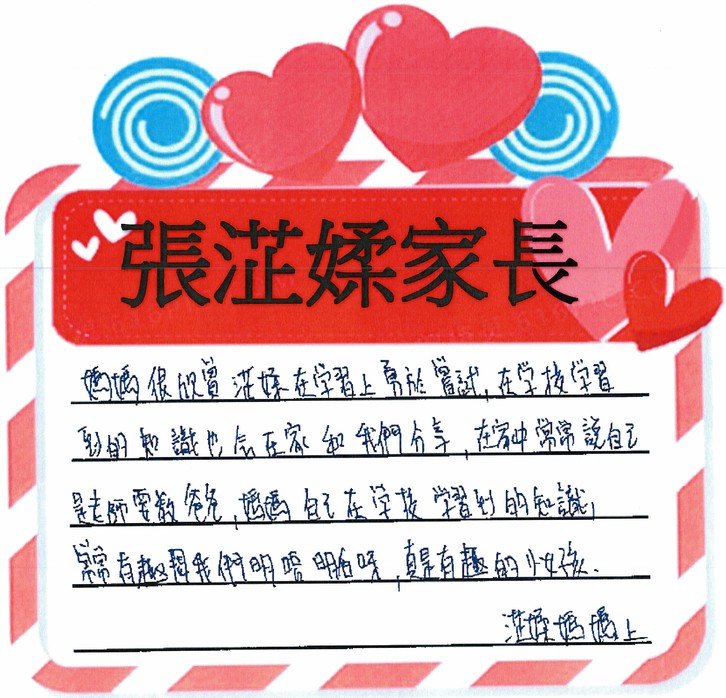 張茳媃家長
媽媽很欣賞茳媃在學習上勇於嘗試,在学校学習
到的知識也会在家和我們分享,在家中常常説自己
是老師要教爸爸,媽媽自己在学校学習到的知識,
常常有趣問我們明唔明白呀,真是有趣的小女孩.
茳媃媽媽上